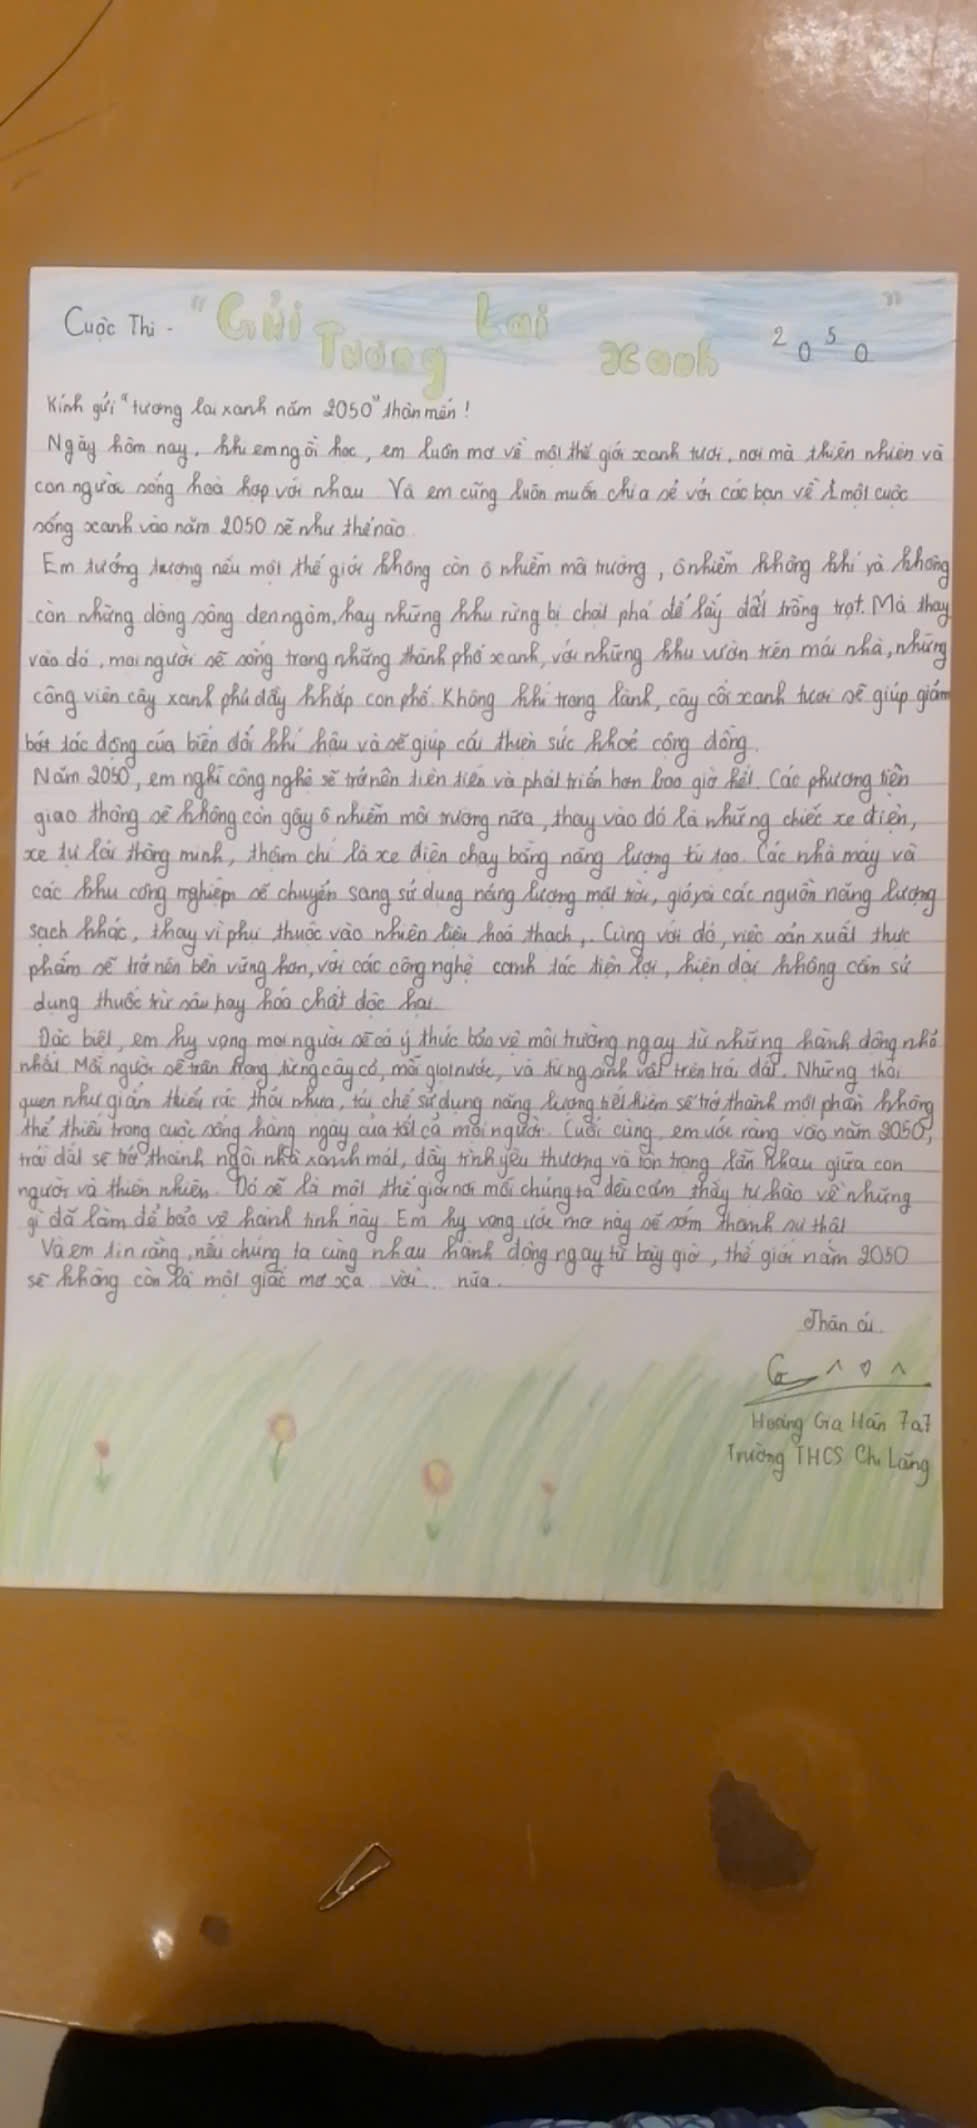 Cuộc Thi - "Gửi Tương Lai xanh 2050"
Kính gửi "tương lai xanh năm 2050" thân mến!
Ngày hôm nay, khi em ngồi học, em luôn mơ về một thế giới xanh tươi, nơi mà thiên nhiên và
con người sống hoà hợp với nhau. Và em cũng luôn muốn chia sẻ với các bạn về 1 một cuộc
sống xanh vào năm 2050 sẽ như thế nào.
Em tưởng tượng nếu một thế giới không còn ô nhiễm mô trường, ô nhiễm không khí và không
còn những dòng sông đen ngòm, hay những khu rừng bị chặt phá để lấy đất trồng trọt. Mà thay
vào đó, mọi người sẽ sống trong những thành phố xanh, với những khu vườn trên mái nhà, những
công viên cây xanh phủ đầy khắp con phố. Không khí trong lành, cây cối xanh tươi sẽ giúp giảm
bớt tác động của biến đổi khí hậu và sẽ giúp cải thiện sức khoẻ cộng đồng.
Năm 2050, em nghĩ công nghệ sẽ trở nên tiên tiến và phát triển hơn bao giờ hết. Các phương tiện
giao thông sẽ không còn gây ô nhiễm môi trường nữa, thay vào đó là những chiếc xe điện,
xe tự lái thông minh, thậm chí là xe điện chạy bằng năng lượng tái tạo. Các nhà máy và
các khu công nghiệp sẽ chuyển sang sử dụng năng lượng mặt trời, gió và các nguồn năng lượng
sạch khác, thay vì phụ thuộc vào nhiên liệu hoá thạch,. Cùng với đó, việc sản xuất thực
phẩm sẽ trở nên bền vững hơn, với các công nghệ canh tác tiện lợi, hiện đại không cần sử
dụng thuốc trừ sâu hay hóa chất độc hại.
Đặc biệt, em hy vọng mọi người sẽ có ý thức bảo vệ môi trường ngay từ những hành động nhỏ
nhất. Mỗi người sẽ trân trọng từng cây cỏ, mỗi giọt nước, và từng sinh vật trên trái đất. Những thói
quen như giảm thiểu rác thải nhựa, tái chế sử dụng năng lượng tiết kiệm sẽ trở thành một phần không
thể thiếu trong cuộc sống hàng ngày của tất cả mọi người. Cuối cùng, em ước rằng vào năm 2050,
trái đất sẽ trở thành ngôi nhà xanh mát, đầy tình yêu thương và tôn trọng lẫn nhau giữa con
người và thiên nhiên. Đó sẽ là một thế giới nơi mỗi chúng ta đều cảm thấy tự hào về những
gì đã làm để bảo vệ hành tinh này. Em hy vọng ước mơ này sẽ sớm thành sự thật
Và em tin rằng, nếu chúng ta cùng nhau hành động ngay từ bây giờ, thế giới năm 2050
sẽ không còn là một giấc mơ xa vời nữa.
Thân ái.
Hoàng Gia Hân 7a7
Trường THCS Chi Lăng